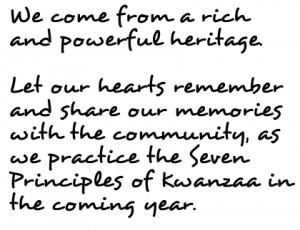 We come from a rich
and powerful heritage.
Let our hearts remember
and share our memories
with the community, as
we practice the Seven
Principles of Kwanzaa in
the coming year.